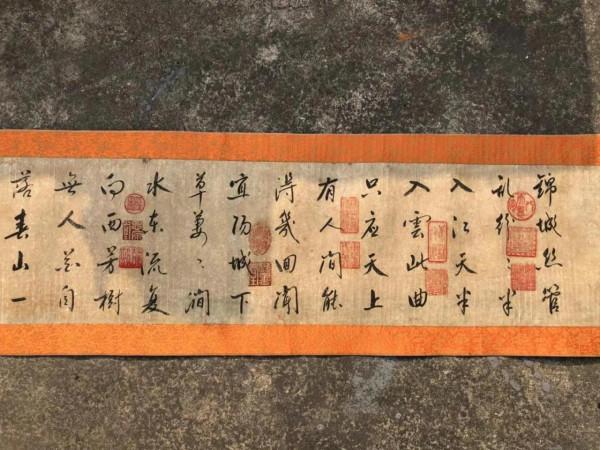 錦城丝管
乱紛々半
入江天半
入雲此曲
只应天上
有人間能
得幾回聞
宜陽城下
草萋々澗
水东流复
向西芳樹
無人花自
落春山一